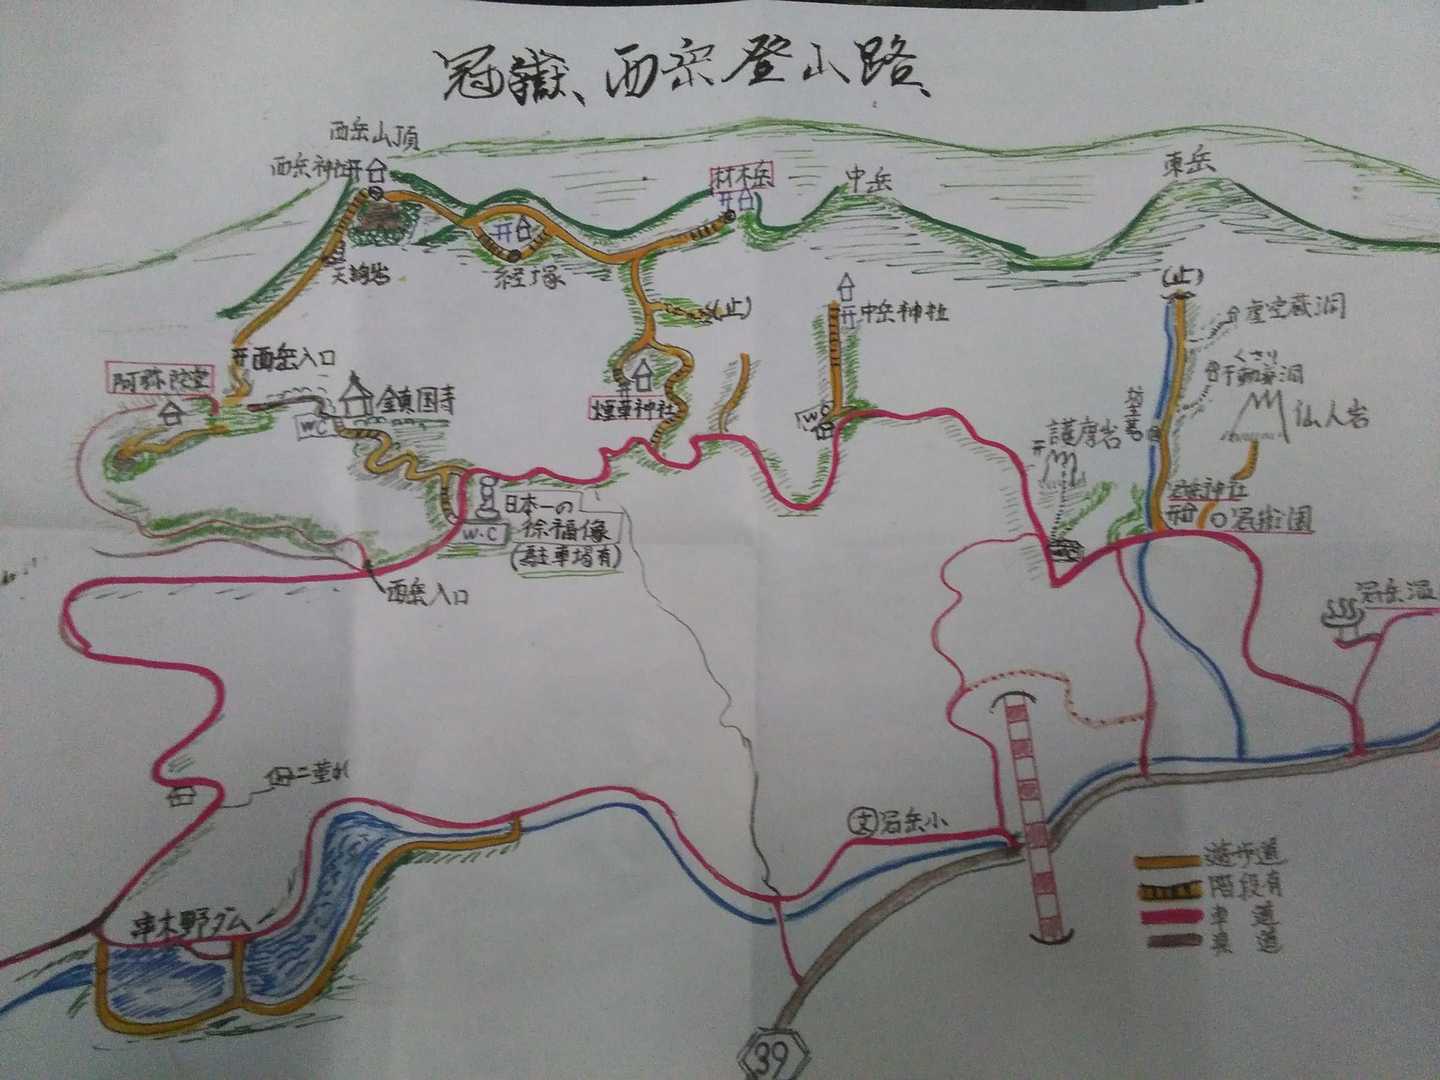 冠嶽、西岳登山路
西岳山頂
西岳神社
材木岳
中岳
東岳
天狗岩
経塚
(止)
(止)
中岳神社
虚空蔵洞
西岳入口
くさり
阿弥陀堂
鎮国寺
WC
煙草神社
WC
護摩岩
仙人岩
日本一の
徐福像
(駐車場有)
W.C
東岳神社
冠嶽園
西岳入口
冠岳温
文 冠岳小
串木野ダム
遊歩道
階段有
車道
県道
39